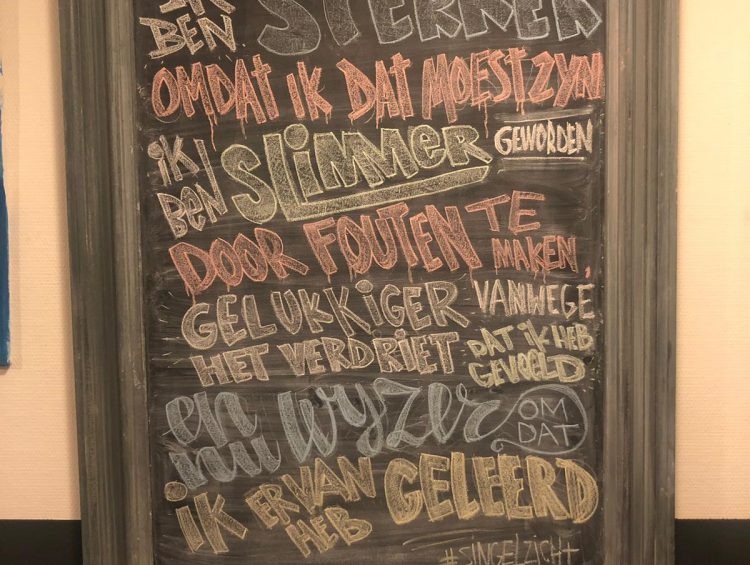 IK BEN STERKER
OMDAT IK DAT MOEST ZYN
IK BEN SLIMMER GEWORDEN
DOOR FOUTEN TE MAKEN,
GELUKKIGER VANWEGE
HET VERDRIET DAT IK HEB GEVOELD
en nu wyzer OM DAT
IK ERVAN HEB GELEERD
#SINGELZICHT